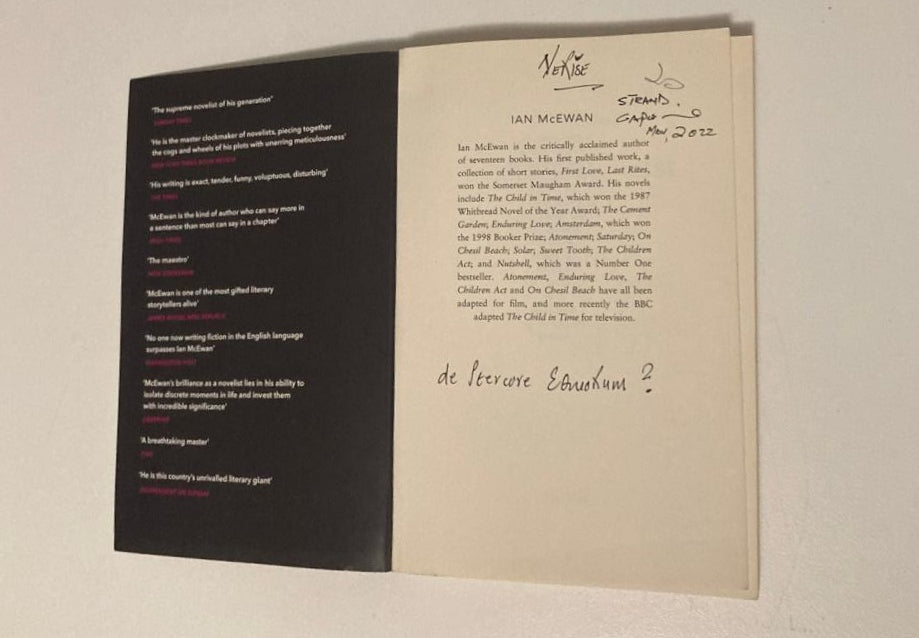 'The supreme novelist of his generation'
SUNDAY TIMES
'He is the master clockmaker of novelists, piecing together
the cogs and wheels of his plots with unerring meticulousness'
NEW YORK TIMES BOOK REVIEW
'His writing is exact, tender, funny, voluptuous, disturbing'
THE TIMES
'McEwan is the kind of author who can say more in
a sentence than most can say in a chapter'
'The maestro'
NEW STATESMAN
'McEwan is one of the most gifted literary
storytellers alive'
JAMES WOOD, NEW REPUBLIC
'No one now writing fiction in the English language
surpasses Ian McEwan'
WASHINGTON POST
'McEwan's brilliance as a novelist lies in his ability to
isolate discrete moments in life and invest them
with incredible significance'
OBSERVER
'A breathtaking master'
TIME
'He is this country's unrivalled literary giant'
INDEPENDENT ON SUNDAY
STRAND.
May, 2022
IAN McEWAN
Ian McEwan is the critically acclaimed author
of seventeen books. His first published work, a
collection of short stories, First Love, Last Rites,
won the Somerset Maugham Award. His novels
include The Child in Time, which won the 1987
Whitbread Novel of the Year Award; The Cement
Garden; Enduring Love; Amsterdam, which won
the 1998 Booker Prize; Atonement; Saturday; On
Chesil Beach; Solar; Sweet Tooth; The Children
Act; and Nutshell, which was a Number One
bestseller. Atonement, Enduring Love, The
Children Act and On Chesil Beach have all been
adapted for film, and more recently the BBC
adapted The Child in Time for television.
de Stercore ?